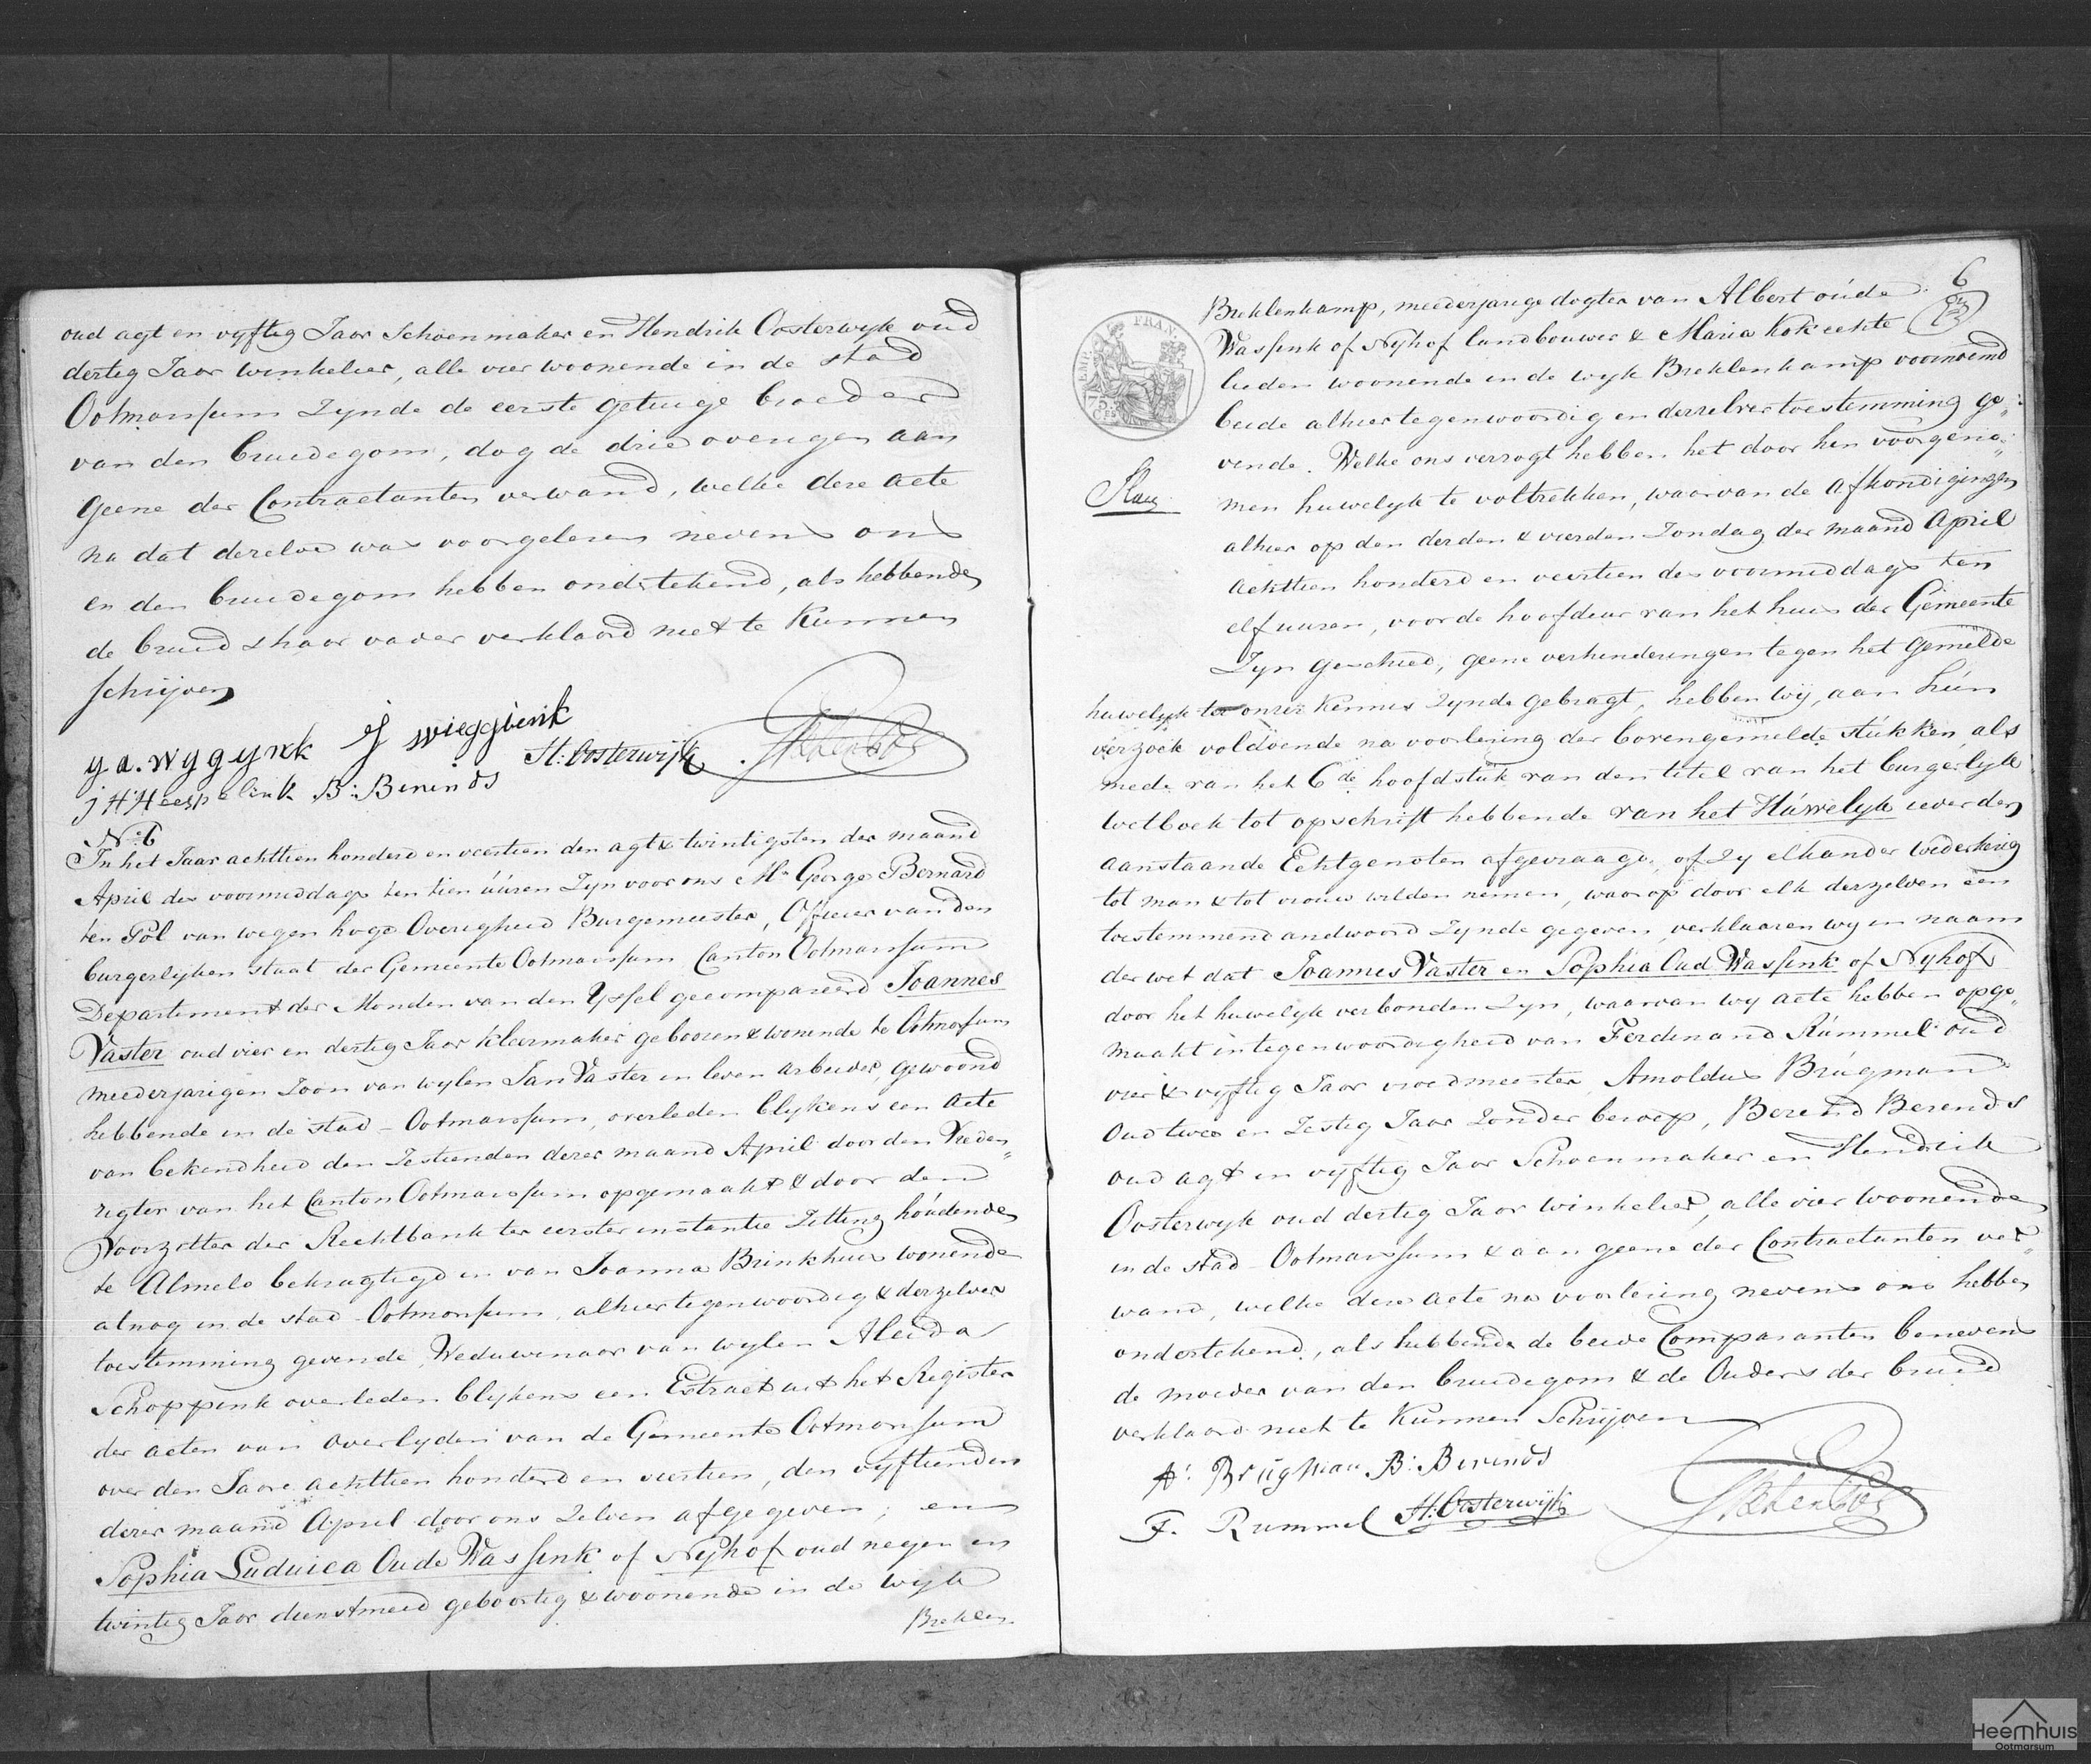 oud agt en vyftig Jaar Schoenmaker en Hendrik Oosterwyk oud
dertig Jaar winkelier, alle vier woonende in de stad
Ootmarssum Zynde de eerste getuige broeder
van den bruidegom, dog de drie overigen aan
geene der Contractanten verwand, welke deze acte
na dat dezelve was voorgelezen nevens ons
en den bruidegom hebben ondertekend, als hebbende
de bruid & haar vader verklaard niet te Kunnen
schrijven
g a. wygynk J wieggienk
H: Oosterwijk
j H Heespelink B: Berends
No 6
In het Jaar achttien honderd en veertien den agt & twintigsten der maand
April des voormiddags ten tien úúren Zyn voor ons Mr George Bernard
ten Pol van wegen hoge Overigheid Burgemeester, Officier van den
burgerlyken staat der Gemeente Ootmarssum Canton Ootmarssum
Departement der Monden van den Yssel gecompareerd Joannes
Vaster oud vier en dertig Jaar kleermaker gebooren & wonende te Otmarsum
meederjarigen Zoon van wylen Jan Vaster in leven arbeider, gewoond
hebbende in de stad Ootmarssum, overleden blykens een acte
van bekendheid den Zestienden dezer maand April door den Vreden„
regter van het Canton Ootmarssum opgemaakt & door den
Voorzitter der Rechtbank ter eerster instantie Zitting hóudende
te Almelo bekragtigd en van Joanna Brinkhuis wonende
alnog in de stad Ootmarssum, alhier tegenwoordig & derzelver
toestemming gevende, Weduwenaar van wylen Aleida
Schoppink overleden blykens een Extract uit het Register
der acten van overlyden van de Gemeente Ootmarssum
over den Jaare achttien honderd en veertien, den vyftienden
dezer maand April door ons Zelven afgegeven; en
Sophia Luduica Oude Wassink of Nyhof oud negen en
twintig Jaar dienstmeid geboortig & woonende in de wijk
Breklen
6
Breklenkamp, meederjarige dogter van Albert oúde
Wassink of Nyhof landbouwer & Maria Kok echte
lieden woonende in de wyk Breklenkamp voornoemd
beide alhier tegenwoordig en derzelver toestemming ge„
vende. Welke ons verzogt hebben het door hen voorgeno„
men huwelyk te voltrekken, waarvan de afkondigingen
alhier op den derden & vierden Zondag der maand April
achttien honderd en veertien des voormiddags ten
elf uuren, voor de hoofdeur van het huis der Gemeente
Zyn geschied, geene verhinderingen tegen het gemelde
huwelyk ter onzer Kennis Zynde gebragt, hebben wij, aan hún
verzoek voldoende na voorlezing der bovengemelde stúkken, als
mede van het 6de hoofdstuk van den titel van het burgerlyk
wetboek tot opschrift hebbende van het Húwelyk ieder den
aanstaande Echtgenoten afgevraagd, of Zy elkander wederkerig
tot man & tot vrouw wilden nemen, waarop door elk derzelven een
toestemmend andwoord Zynde gegeven, verklaaren wy in naam
der wet dat Joannes Vaster en Sophia Oud Wassink of Nyhof
door het huwelyk verbonden Zyn, waarvan wy acte hebben opge„
maakt in tegenwoordigheid van Ferdinand Rúmmel oud
vier & vyftig Jaar vroedmeester, Arnoldus Brúgman
Oud twee en Zestig Jaar Zonder beroep, Berend Berends
oud agt en vyftig Jaar Schoenmaker en Hendrik
Oosterwyk oud dertig Jaar winkelier, alle vier woonende
in de stad Ootmarssum & aan geene der Contractanten ver„
wand, welke deze acte na voorlezing nevens ons hebben
ondertekend, als hebbende de beide Comparanten benevens
de moeder van den bruidegom & de Ouders der bruid
verklaard niet te Kunnen Schrijven
A: Brúgman B: Berends
F. Rummel H: Oosterwijk
Heemhuis
Ootmarsum